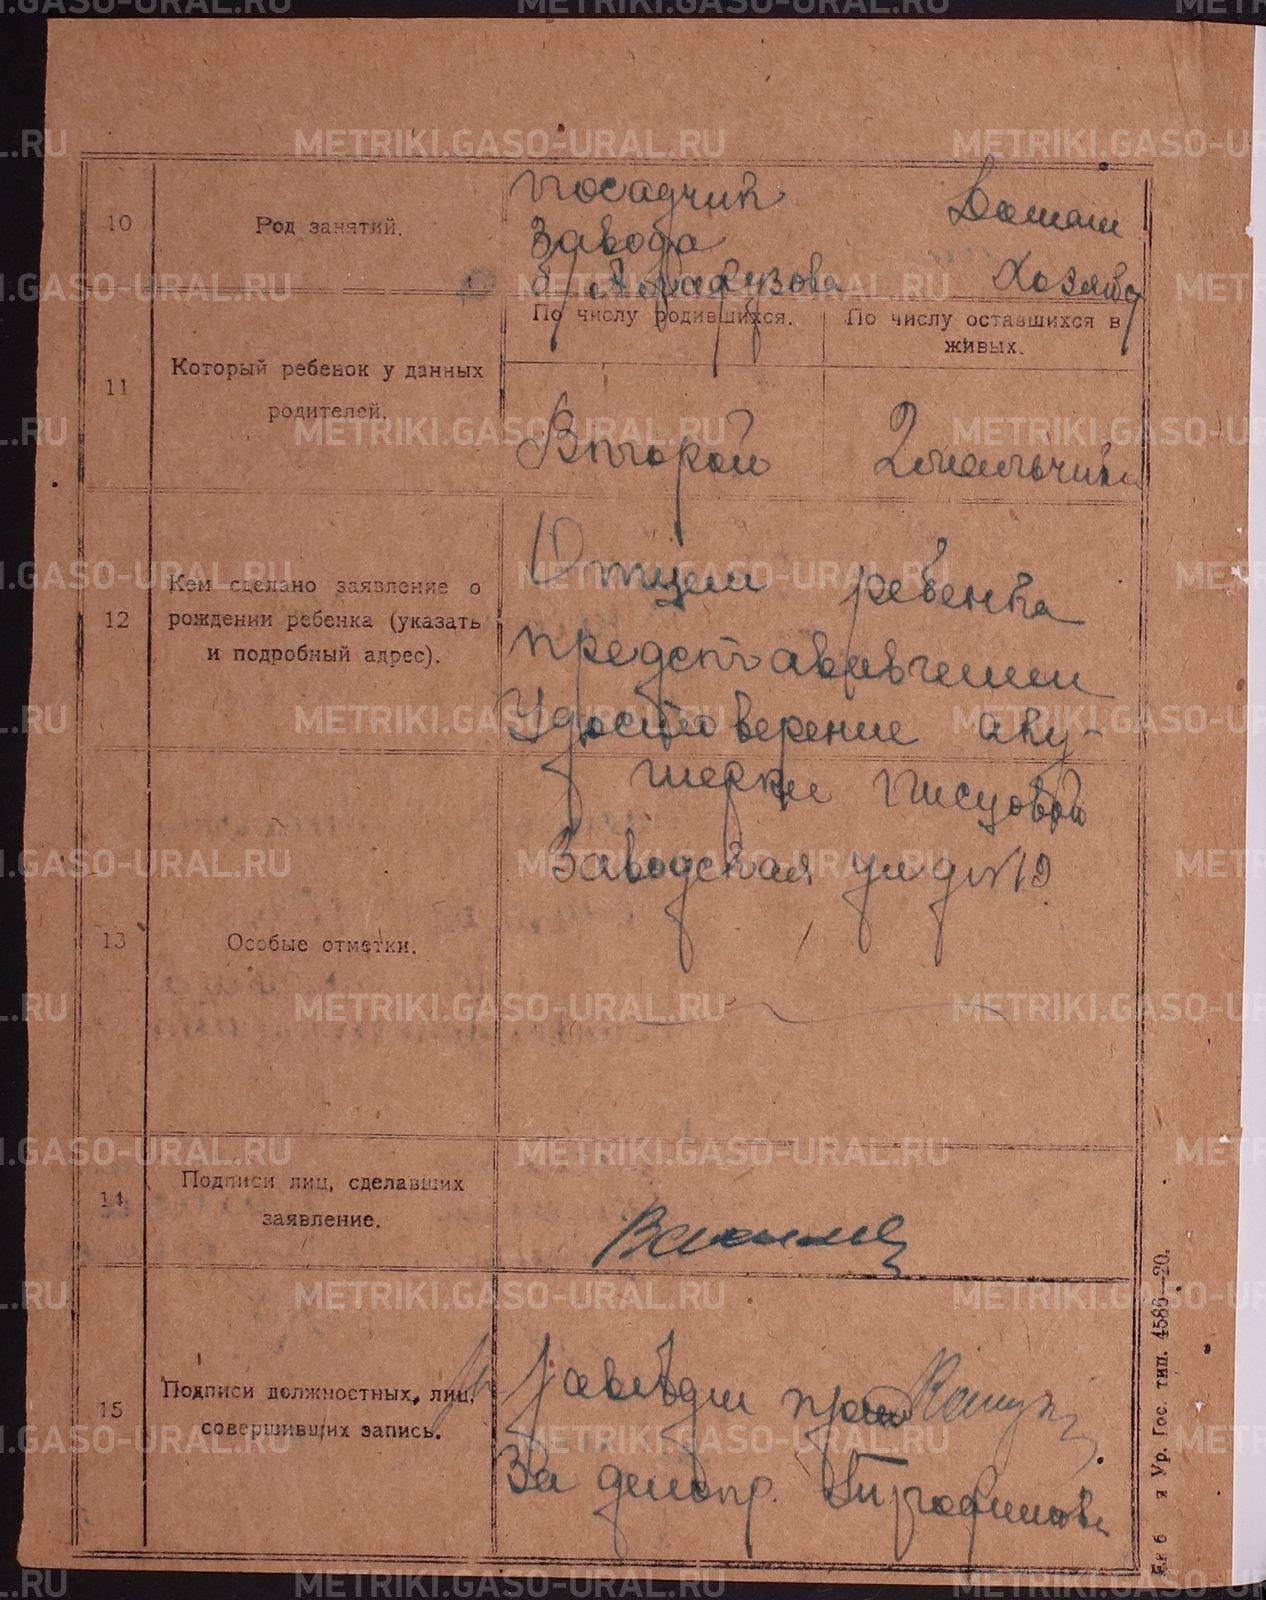 10
Род занятий.
Посадчик
Завода
б Арафузова
Домаш
Хозяйс
11
Который ребенок у данных
родителей.
По числу родившихся.
По числу оставшихся в
живых.
Второй
2 мальчика
12
Кем сделано заявление о
рождении ребенка (указать
и подробный адрес).
Отцем ребенка
представившем
Удостоверение аку-
шерки Писцовой
Заводская ул д №19
13
Особые отметки.
14
Подписи лиц, сделавших
заявление.
15
Подписи должностных лиц,
совершивших запись.
Заведщ
За делопр. Трофимова
я Ур. Гос. тип. 4586—20.
METRIKI.GASO-URAL.RU